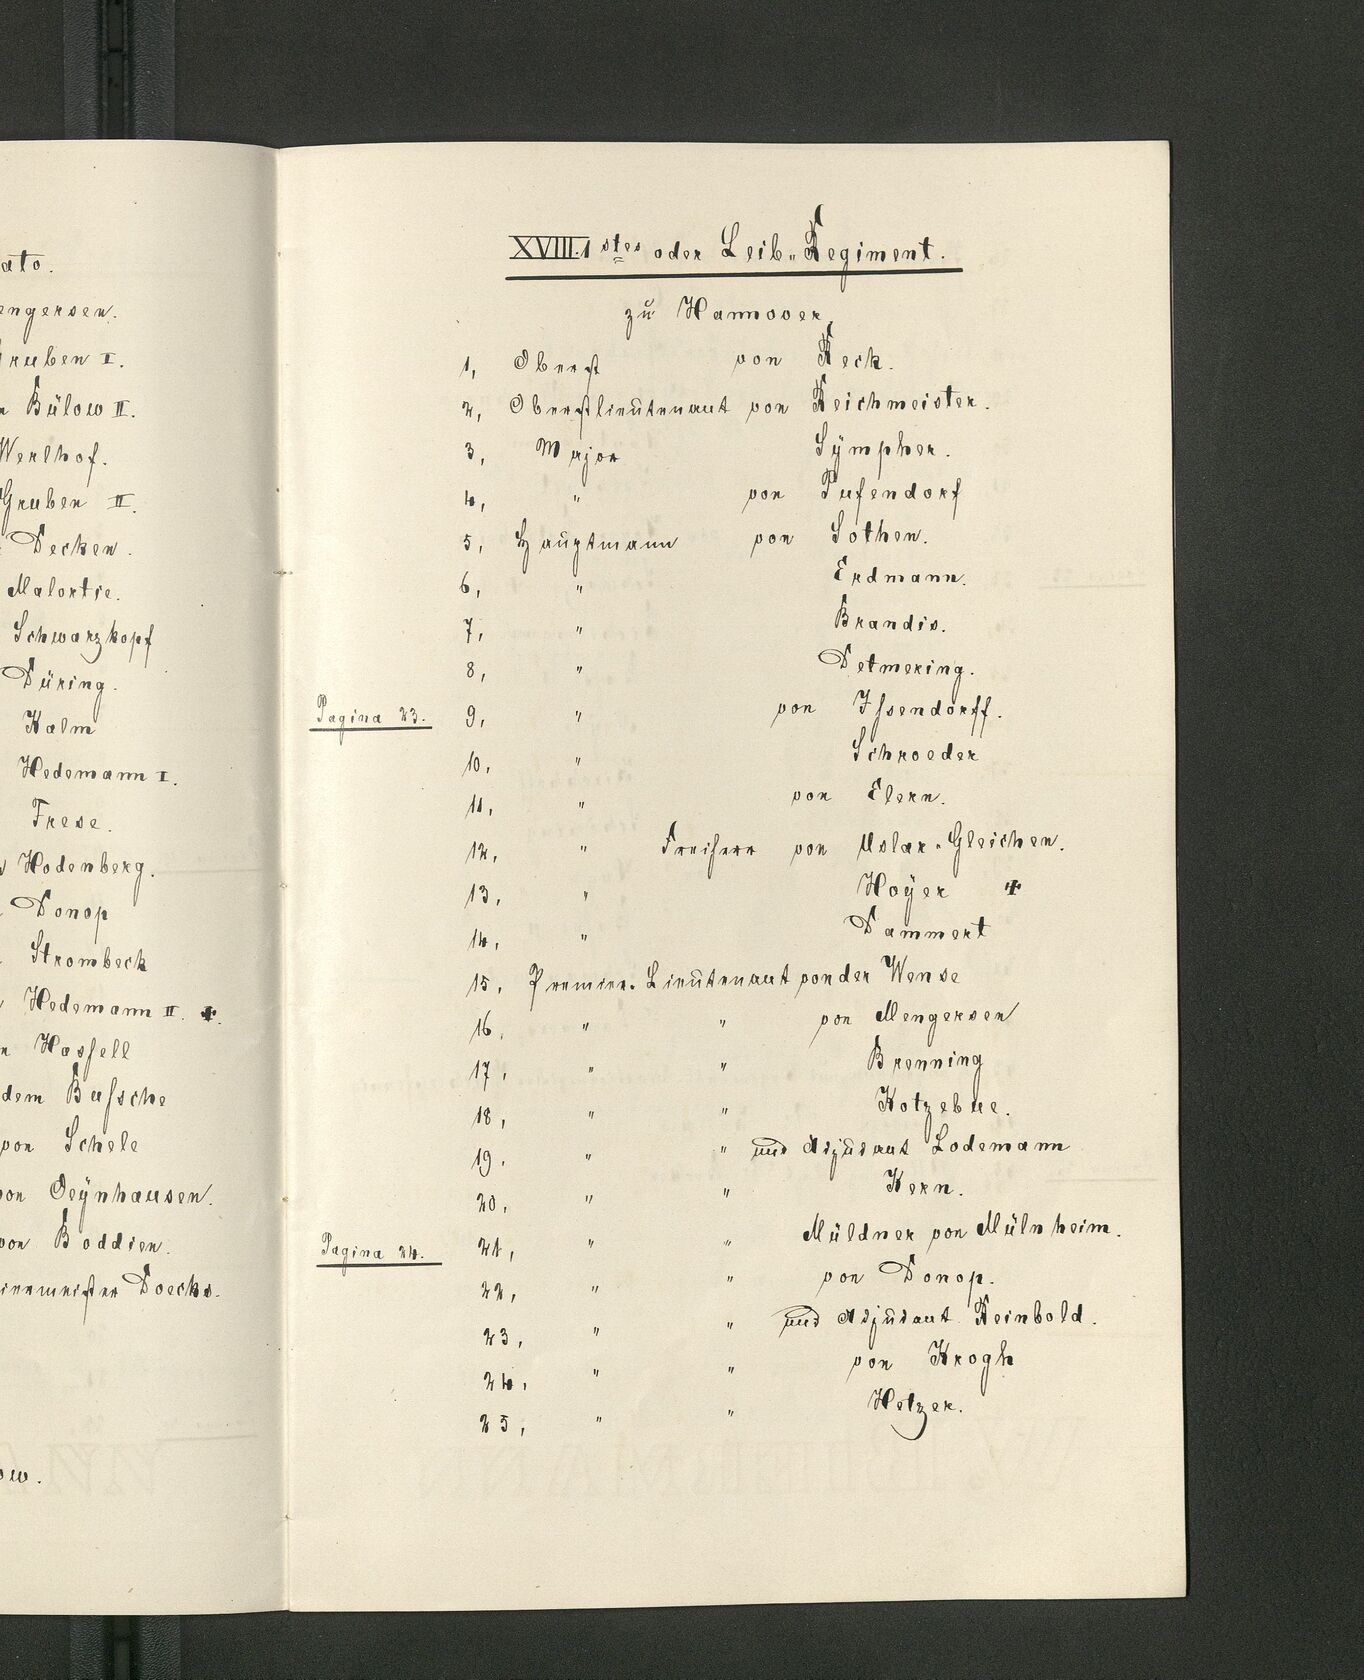 ato.
engersen.
ruben I.
n Bülow II.
Werlhof.
Gruben II.
Decken.
Malortie.
Schwarzkopf
Düring.
Kalm
Hedemann I.
Frese.
Hodenberg.
Donop
Strombeck
Hedemann II. ✝.
n Hassell
dem Bussche
von Schele
von Oeÿnhausen.
von Boddien.
Doecks.
ow.
XVIII. 1stes oder Leib-Regiment.
zu Hannover.
1, Oberst von Reck.
2, Oberstlieutenant von Reichmeister.
3, Major Sÿmpher.
4, " von Pufendorf
5, Hauptmann von Sothen.
6, " Erdmann.
7, " Brandis.
8, " Detmering.
Pagina 23. 9, " von Issendorff.
10, " Schroeder
11, " von Elern.
12, " Freiherr von Uslar-Gleichen.
13, " Hoÿer ✝
14, " Dammert
15, Premier-Lieutenant von der Wense
16, " " von Mengersen
17, " " Brenning
18, " " Kotzebue.
19, " " und Adjudant Lodemann
20, " " Kern.
Pagina 24. 21, " " Müldner von Mülnheim.
22, " " von Donop.
23, " " und Adjudant Reinbold.
24, " " von Krogh
25, " " Hetzer.